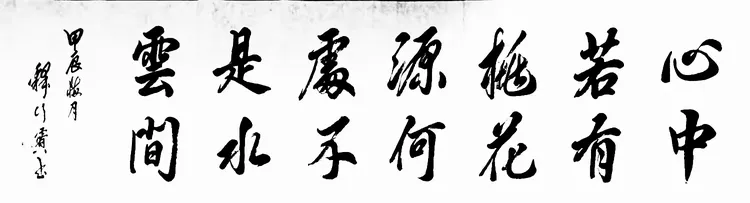 心中
若有
桃花
源何
處不
是水
雲間
甲辰梅月
釋行書